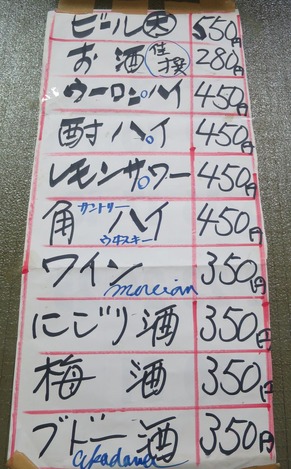 ビール 大 550円
お酒 佳撰 280円
ウーロンハイ 450円
酎ハイ 450円
レモンサワー 450円
角ハイ サントリー ウヰスキー 450円
ワイン mercian 350円
にごり酒 350円
梅酒 350円
ブドー酒 akadama 350円